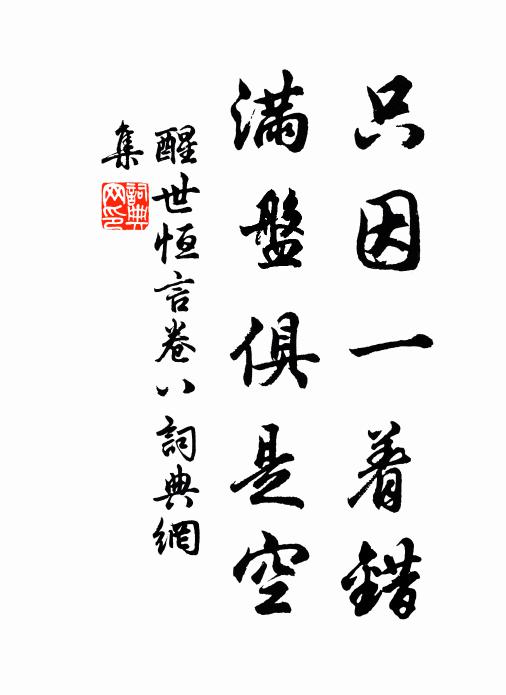 只因一着錯
滿盤俱是空
醒世恒言卷八 詞典網
集
詞典網印